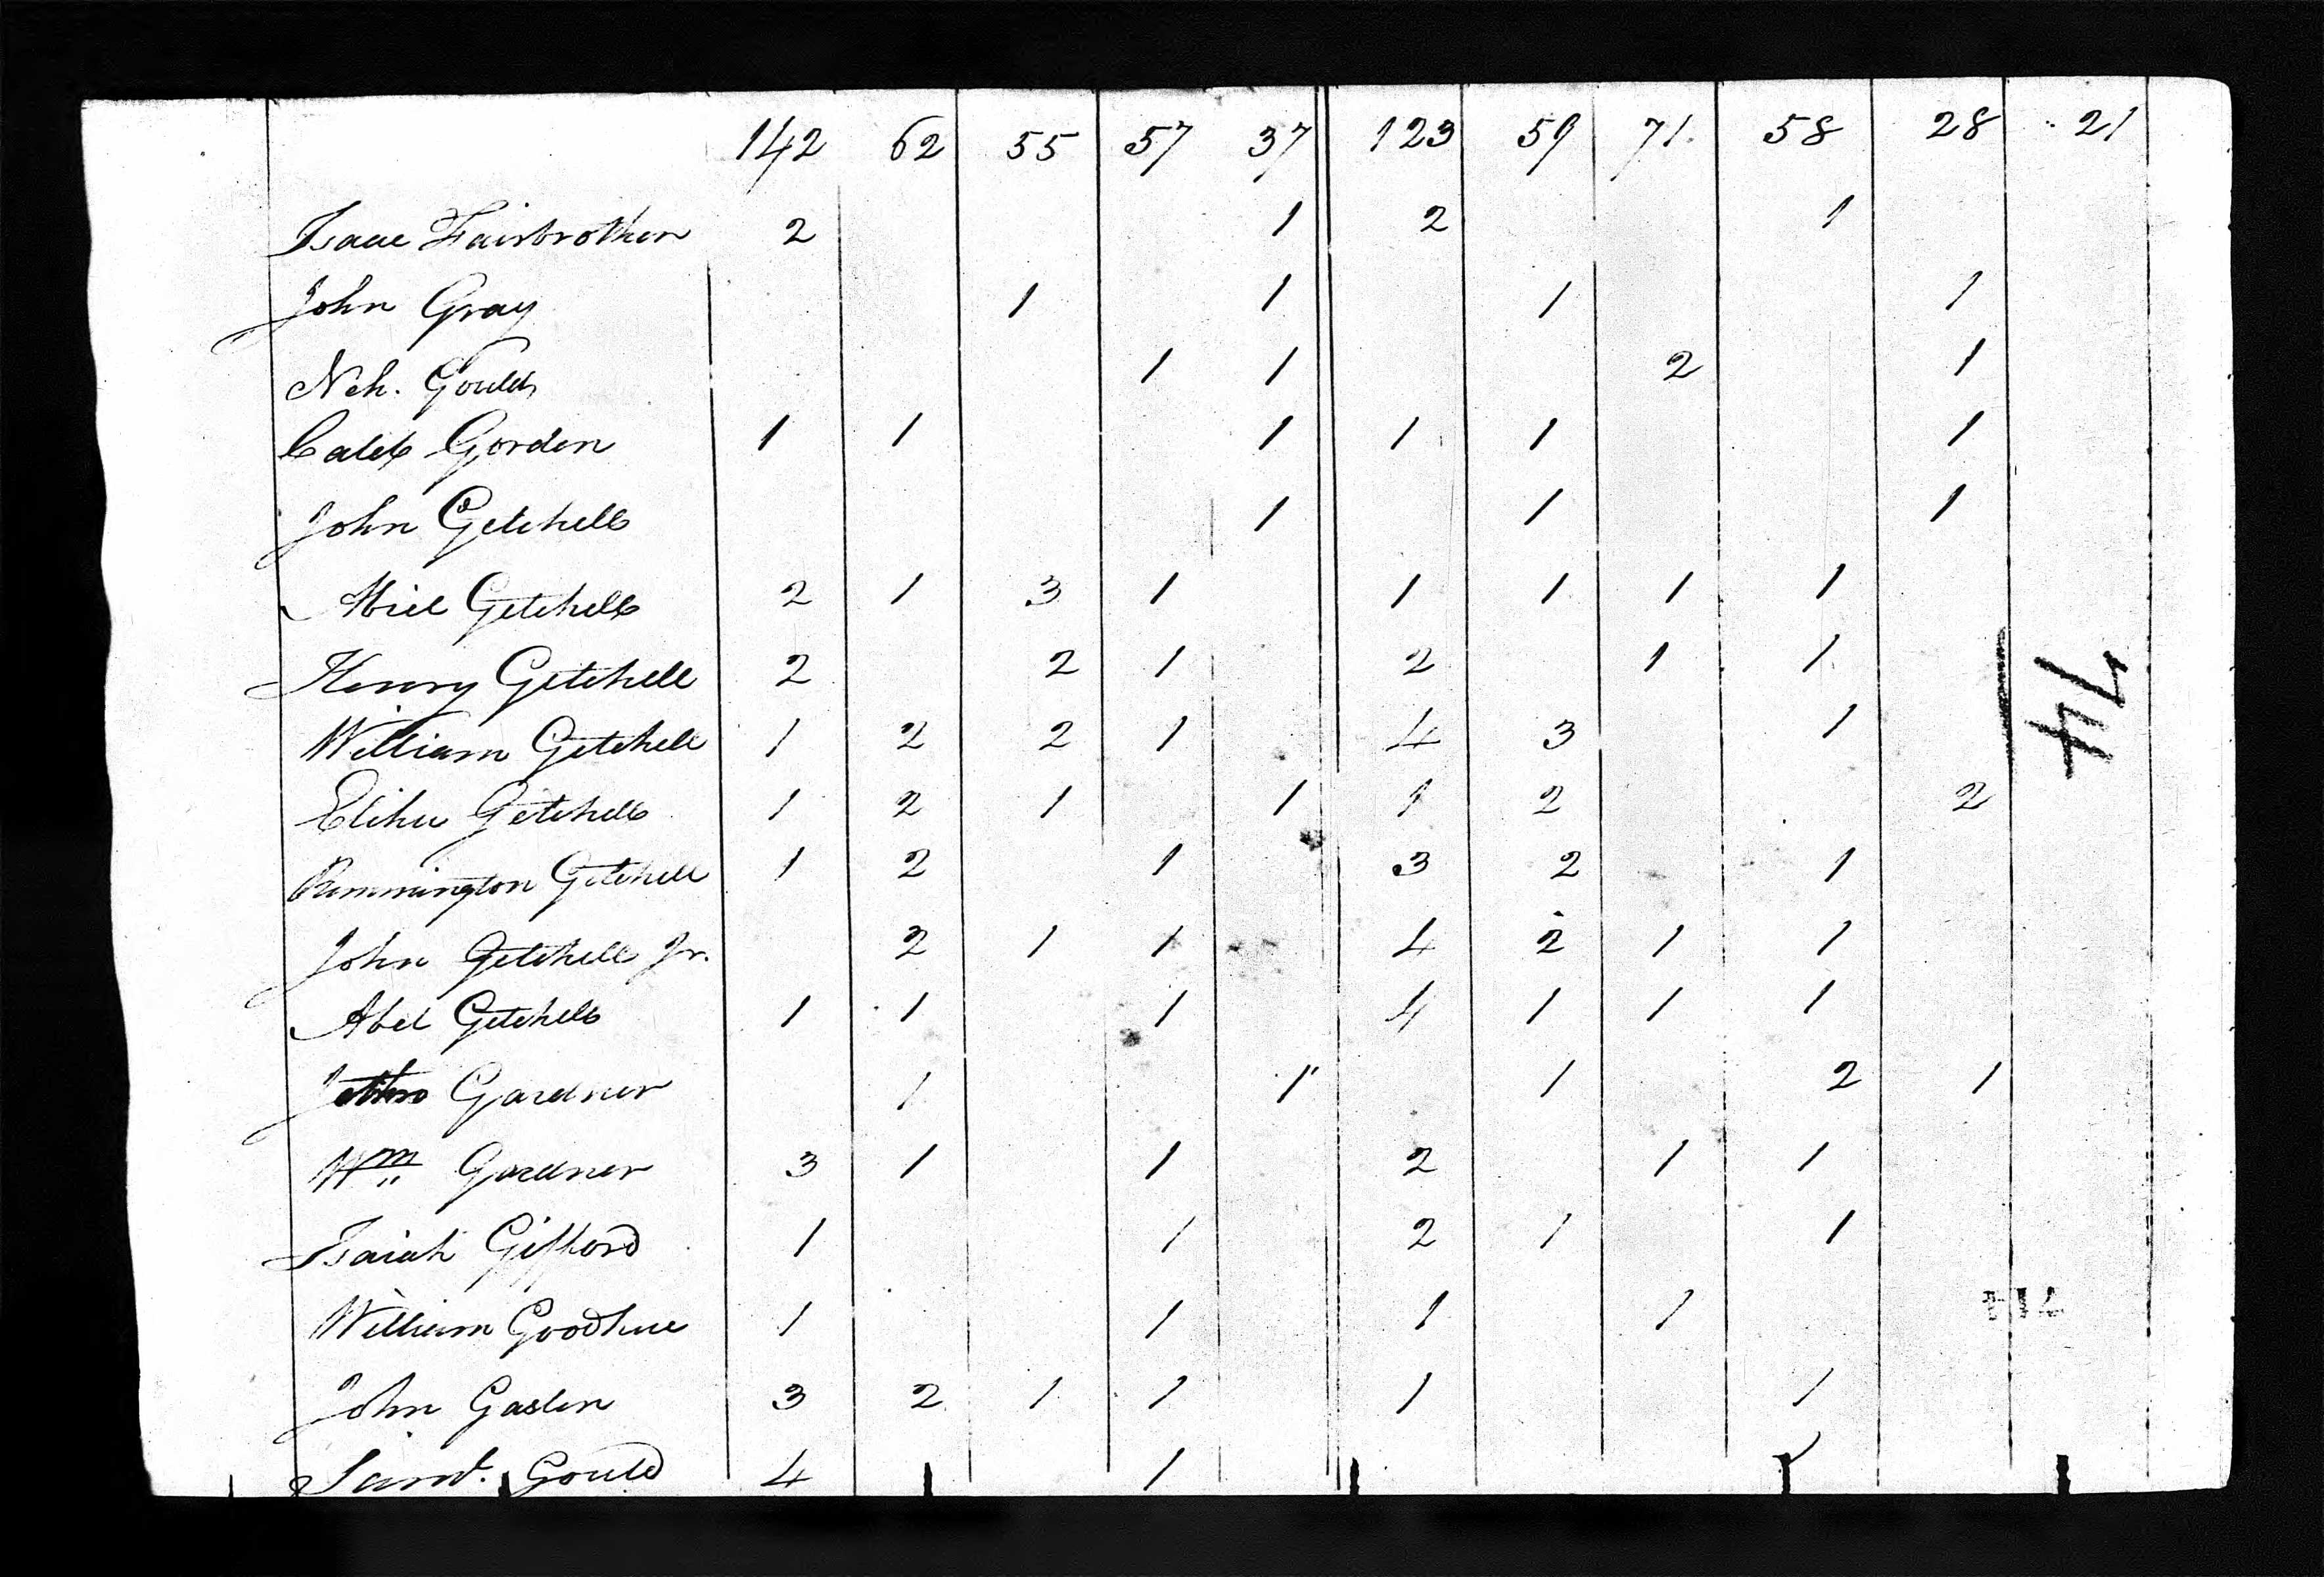 142 62 55 57 37 123 59 71 58 28 21
Isaac Fairbrother 2 1 2 1
John Gray 1 1 1 1
Neh. Gould 1 1 2 1
Caleb Gorden 1 1 1 1 1 1
John Getchell 1 1 1
Abiel Getchell 2 1 3 1 1 1 1 1
Henry Getchell 2 2 1 2 1 1
William Getchell 1 2 2 1 4 3 1
74
Elihu Getchell 1 2 1 1 1 2 2
Rimmington Getchell 1 2 1 3 2 1
John Getchell Jr. 2 1 1 4 2 1 1
Abel Getchell 1 1 1 4 1 1 1
Jethro Gardner 1 1 1 2 1
Wm Gardner 3 1 1 2 1 1
Isaiah Gifford 1 1 2 1 1
William Goodhue 1 1 1 1
John Gaslin 3 2 1 1 1 1
Saml. Gould 4 1 1